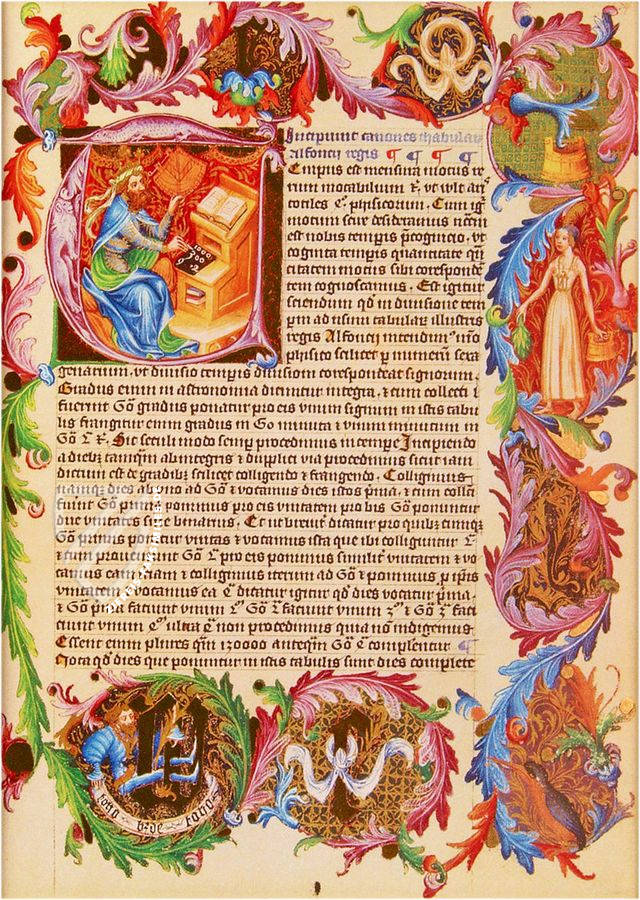 Incipiunt canones thabular
Alfoncij regis ¶ ¶ ¶ ¶
Tempus est mensura motus re
rum mobilium & vt vlt aris
totiles phisicorum. Cum igr
motum scire desideramus necem
est nobis temporis precognicio, vt
cognita temporis quantitate
titatem motus sibi corespondē
tem cognoscamus. Est igitur
sciendum qd in divisione tem
ad usum tabular illustris
regis Alfoncij intendim non
phisico scilicet per numerum sexa
genarium, vt divisio temporis divisioni correspondeat signorum.
Gradus enim in astronomia dicuntur integra, & cum collecti
fuerint Go gradus ponatur pro eis vnum signum in istis tabu
lis frangitur enim gradus in Go minuta & vnum minutum in
Go. Sic simili modo semper procedimus in tempore Incipiendo
a diebus tamquam ab integris & duplici via procedimus sicut iam
dictum est de gradibus scilicet colligendo & frangendo. Colligimus
namque dies ab uno ad Go & vocamus dies istos prima, & cum collecti
fuerint Go prima ponimus pro eis vnitatem pro bis Go ponuntur
due vnitates siue binarius. Et ut breuiter dicatur pro quibuscumque
Go primis ponitur vnitas & vocamus ista que ibi colliguntur
& cum prouenerint Go pro eis ponimus similiter vnitatem & vo
camus ea & colligimus iterum ad Go & ponimus pro ipsis
vnitatem & vocamus ea dicatur igitur qd dies vocatur prima,
& Go prima faciunt vnum Go faciunt vnum & Go faci
ciunt vnum ultra non procedimus quia non indigemus
Essent enim plures qm 120000 anteqm Go complentur ¶
Nota qd dies que ponuntur in istis tabulis sunt dies complete
1000
300
toho bzde toho